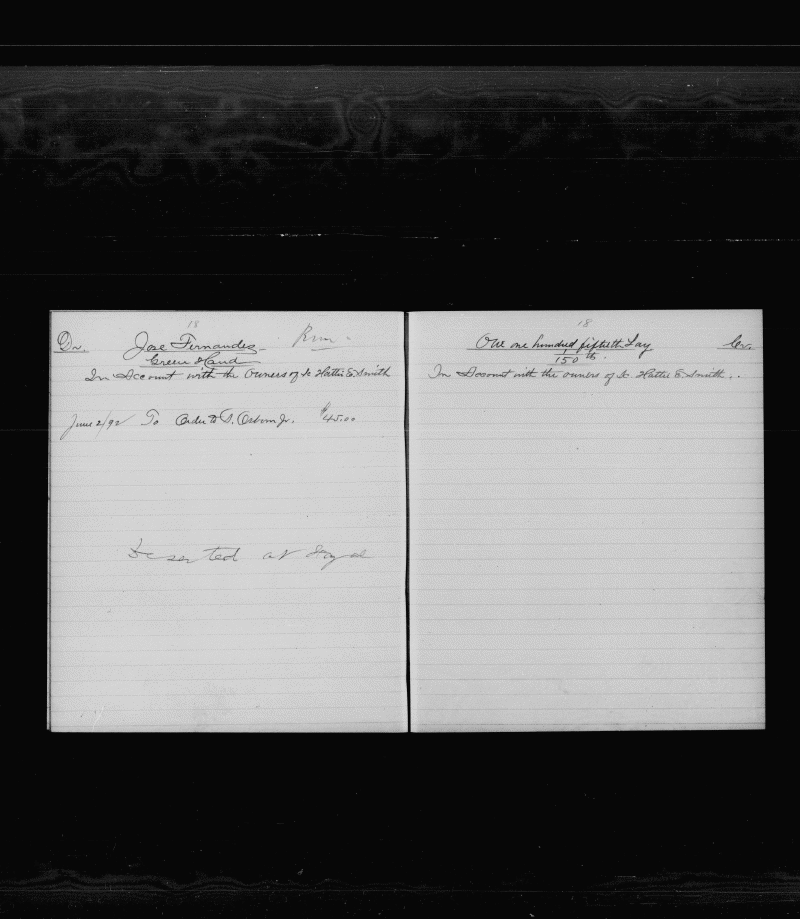 18
Dr. Jose Fernandes
Green Hand
In Account with the Owners of Sc Hattie E. Smith
June 2/92 To Order to S. Osborn Jr. $45.00
Deserted at
18
One one hundred fiftieth Lay Cr.
150 th.
In Account with the owners of Sc Hattie E. Smith.